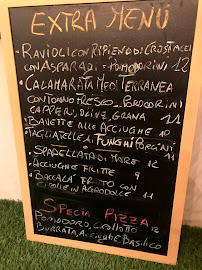 EXTRA MENÚ
• RAVIOLI CON RIPIENO DI CROSTACEI
CON ASPARAGI E POMODORINI 12
• CALAMARATA MEDITERRANEA
CON TONNO FRESCO, POMODORINI
CAPPERI, OLIVE, GRANA 11
• BAVETTE ALLE ACCIUGHE 10
• TAGLIATELLE AI FUNGHI PORCINI
• SPADELLATA DI MARE 12 11
• ACCIUGHE FRITTE 9
• BACCALÀ FRITTO CON
CIPOLLE IN AGRODOLCE 11
SPECIAL PIZZA
POMODORO, CULATTO 12
BURRATA, ACCIUGHE BASILICO